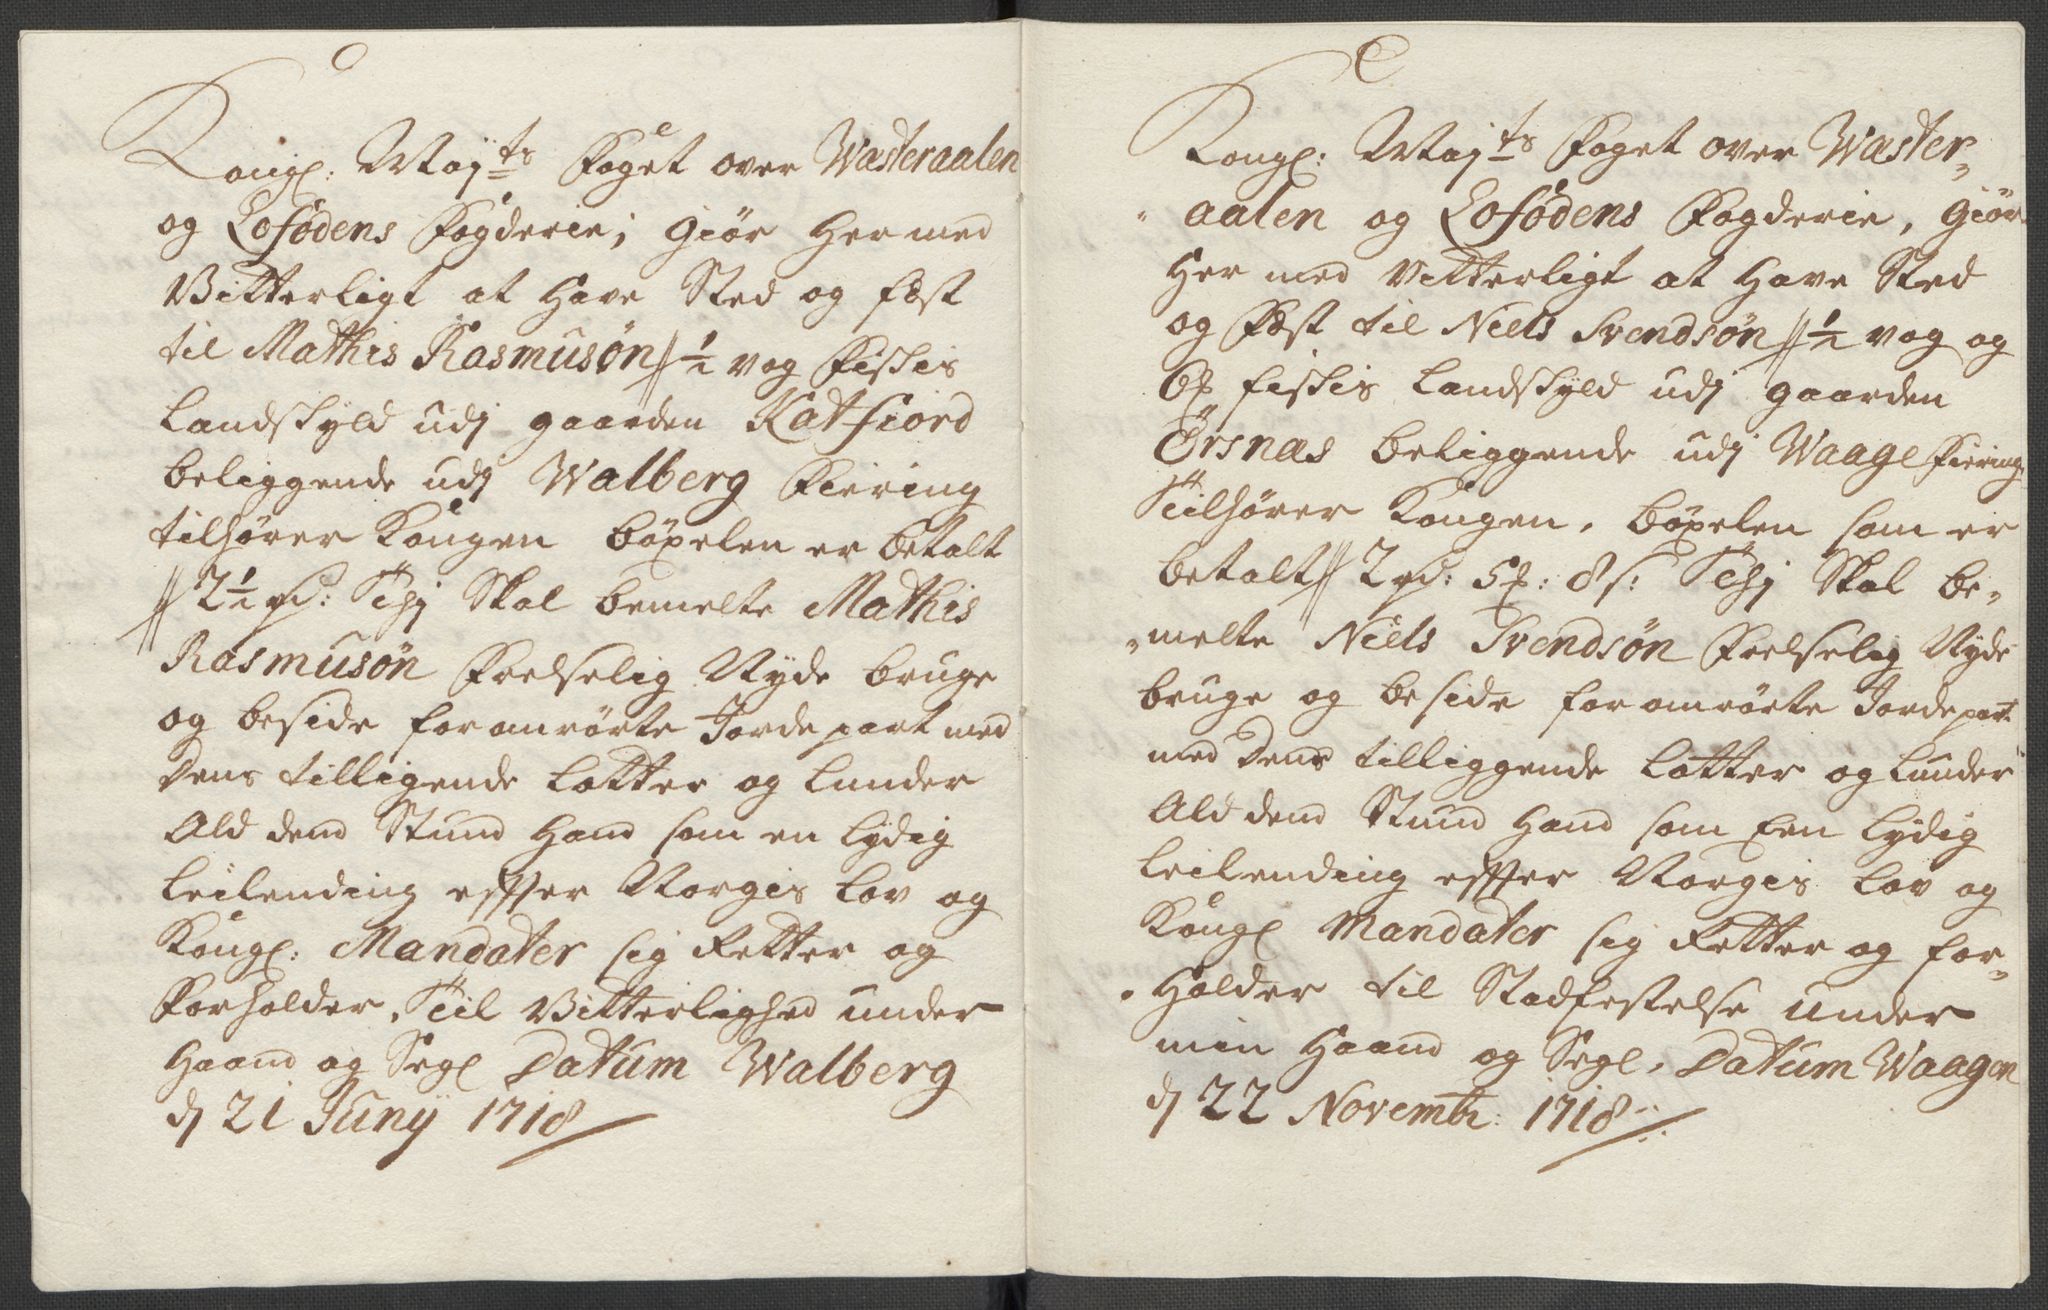 Kongl: Maÿts Foget over Wasteraalen
og Lofodens Fogderie, giør her med
Vitterligt at have Sted og fæst
til Mathis Rasmusøn // ½ vog Fiskis
Landskyld udj gaarden Katfiord
beliggende udj Walberg Fiering
tilhører Kongen böxelen er betalt
// 2½ rd: Thj Skal bemelte Mathis
Rasmusøn Frelselig Nyde bruge
og beside foranrørte Jordepart med
dens tilligende Lotter og Lunder
Ald dend Stund hand som en lydig
Leilending effter Norgis Lov og
Kongl: Mandater sig Retter og
Forholder. Til Vitterlighed under
Haand og Segl Datum Walberg
d 21 Junÿ 1718
Kongl: Majts Foget over Waster-
aalen og Lofodens Fogderie, giør
her med vitterligt at have Sted
og Fæst til Niels Svendsøn // ½ vog og
fiskis Landskyld udj gaarden
Örsnas beliggende udj Waage Fiering
Tilhører Kongen. böxelen som er
betalt // 2 rd: 5 : 8 s: Thj Skal be-
melte Niels Svendsøn Frelselig Nyde
bruge og beside foranrørte Jordepart
med dens tilliggende Lotter og Lunder
Ald dend Stund hand som Een lydig
Leilending effter Norgis Lov og
Kongl Mandater sig Retter og for-
holder til Stadfestelse under
min Haand og Segl. Datum Waagen
d 22 Novembr: 1718